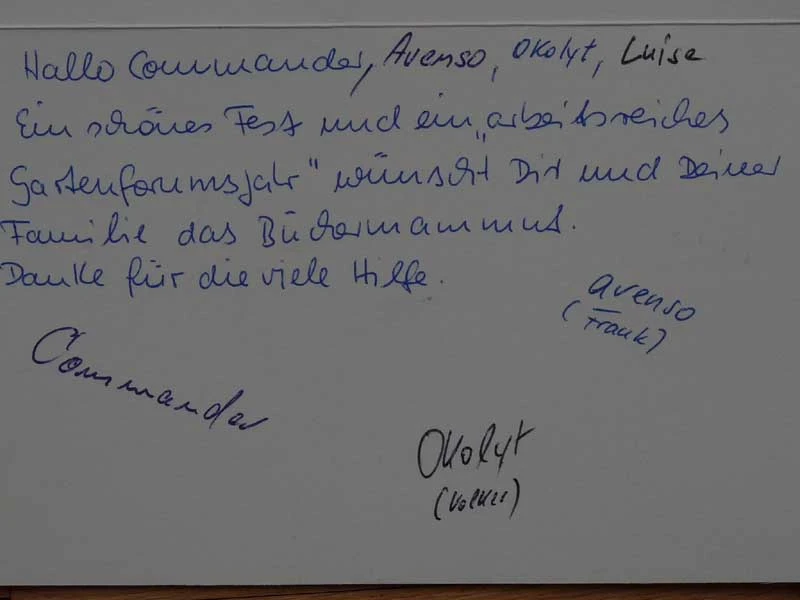 Hallo Commander, Avenso, Okolyt, Luise
Ein schönes Fest und ein „arbeitsreiches
Gartenforumsjahr" wünscht Dir und Deiner
Familie das Büchermammut.
Danke für die viele Hilfe.
avenso
(Frank)
Commander
Okolyt
(Volker)